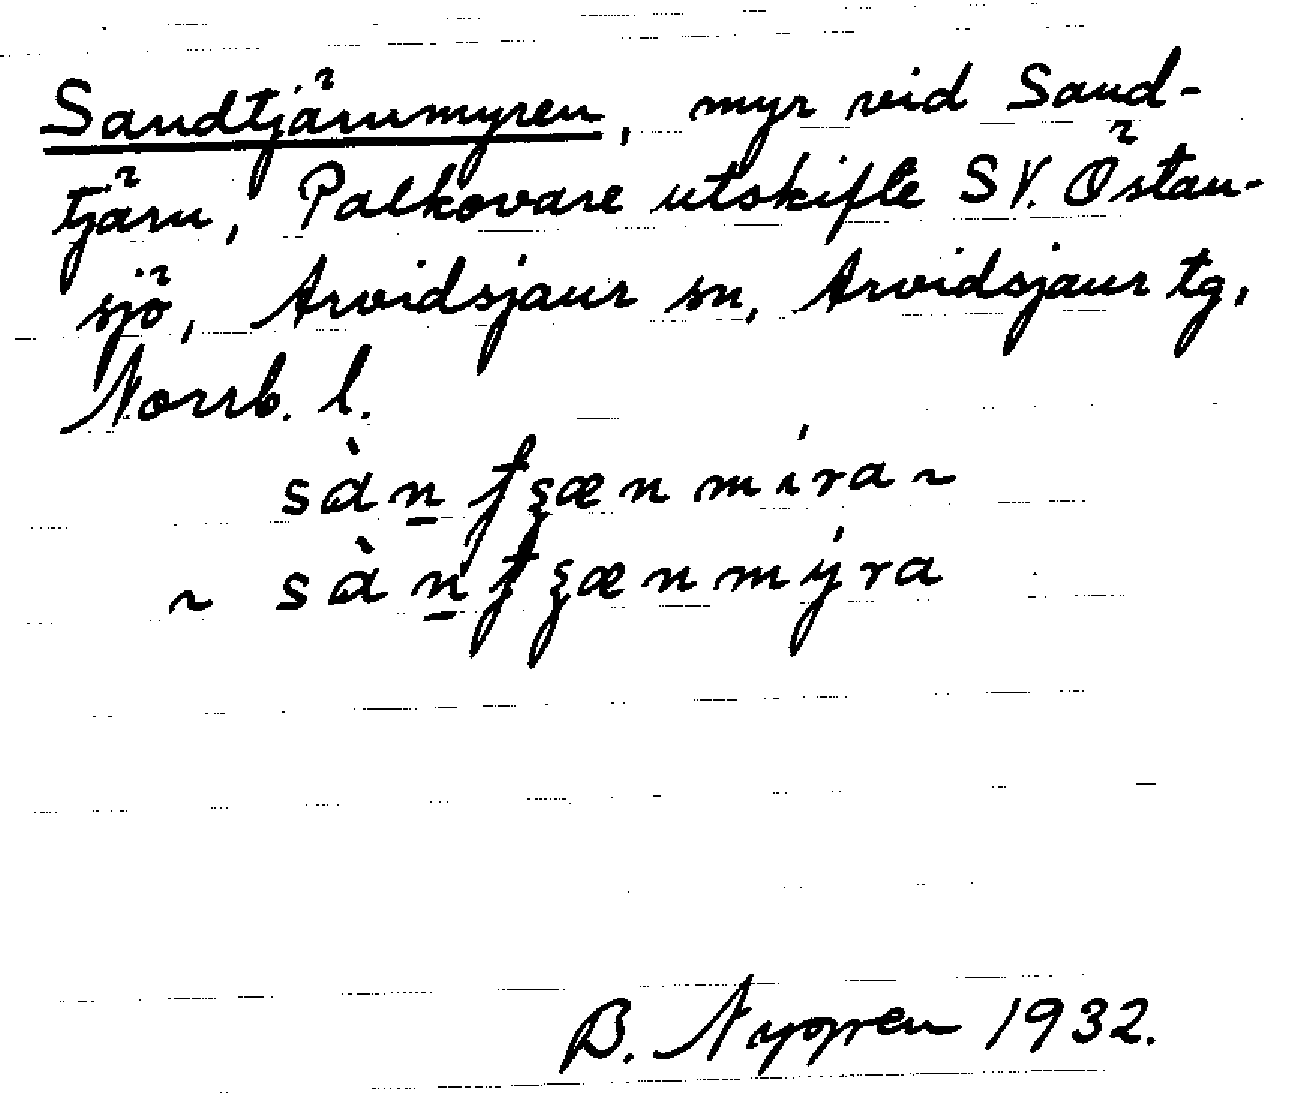 Sandtjärnmyren, myr vid Sand-
tjärn, Palkovare utskifte SV. Östan-
sjö, Arvidsjaur sn, Arvidsjaur tg,
Norrb. l.
sàn̲ʄʒænmíra ~
~ sàn̲ʄʒænmýra
B. Nygren 1932.